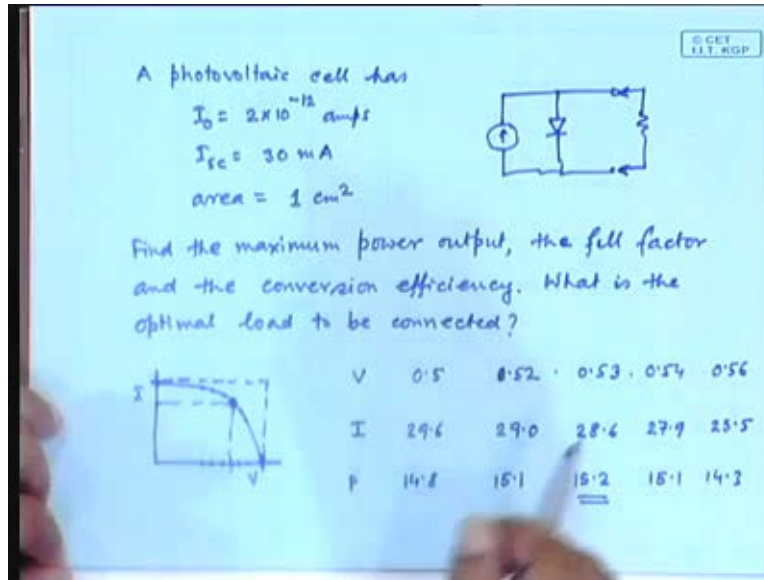 © CET
I.I.T. KGP
A photovoltaic cell has
I₀ = 2×10⁻¹² amps
Isc = 30 mA
area = 1 cm²
Find the maximum power output, the fill factor
and the conversion efficiency. What is the
optimal load to be connected?
I
V
V 0.5 0.52 0.53 0.54 0.56
I 29.6 29.0 28.6 27.9 25.5
P 14.8 15.1 15.2 15.1 14.3